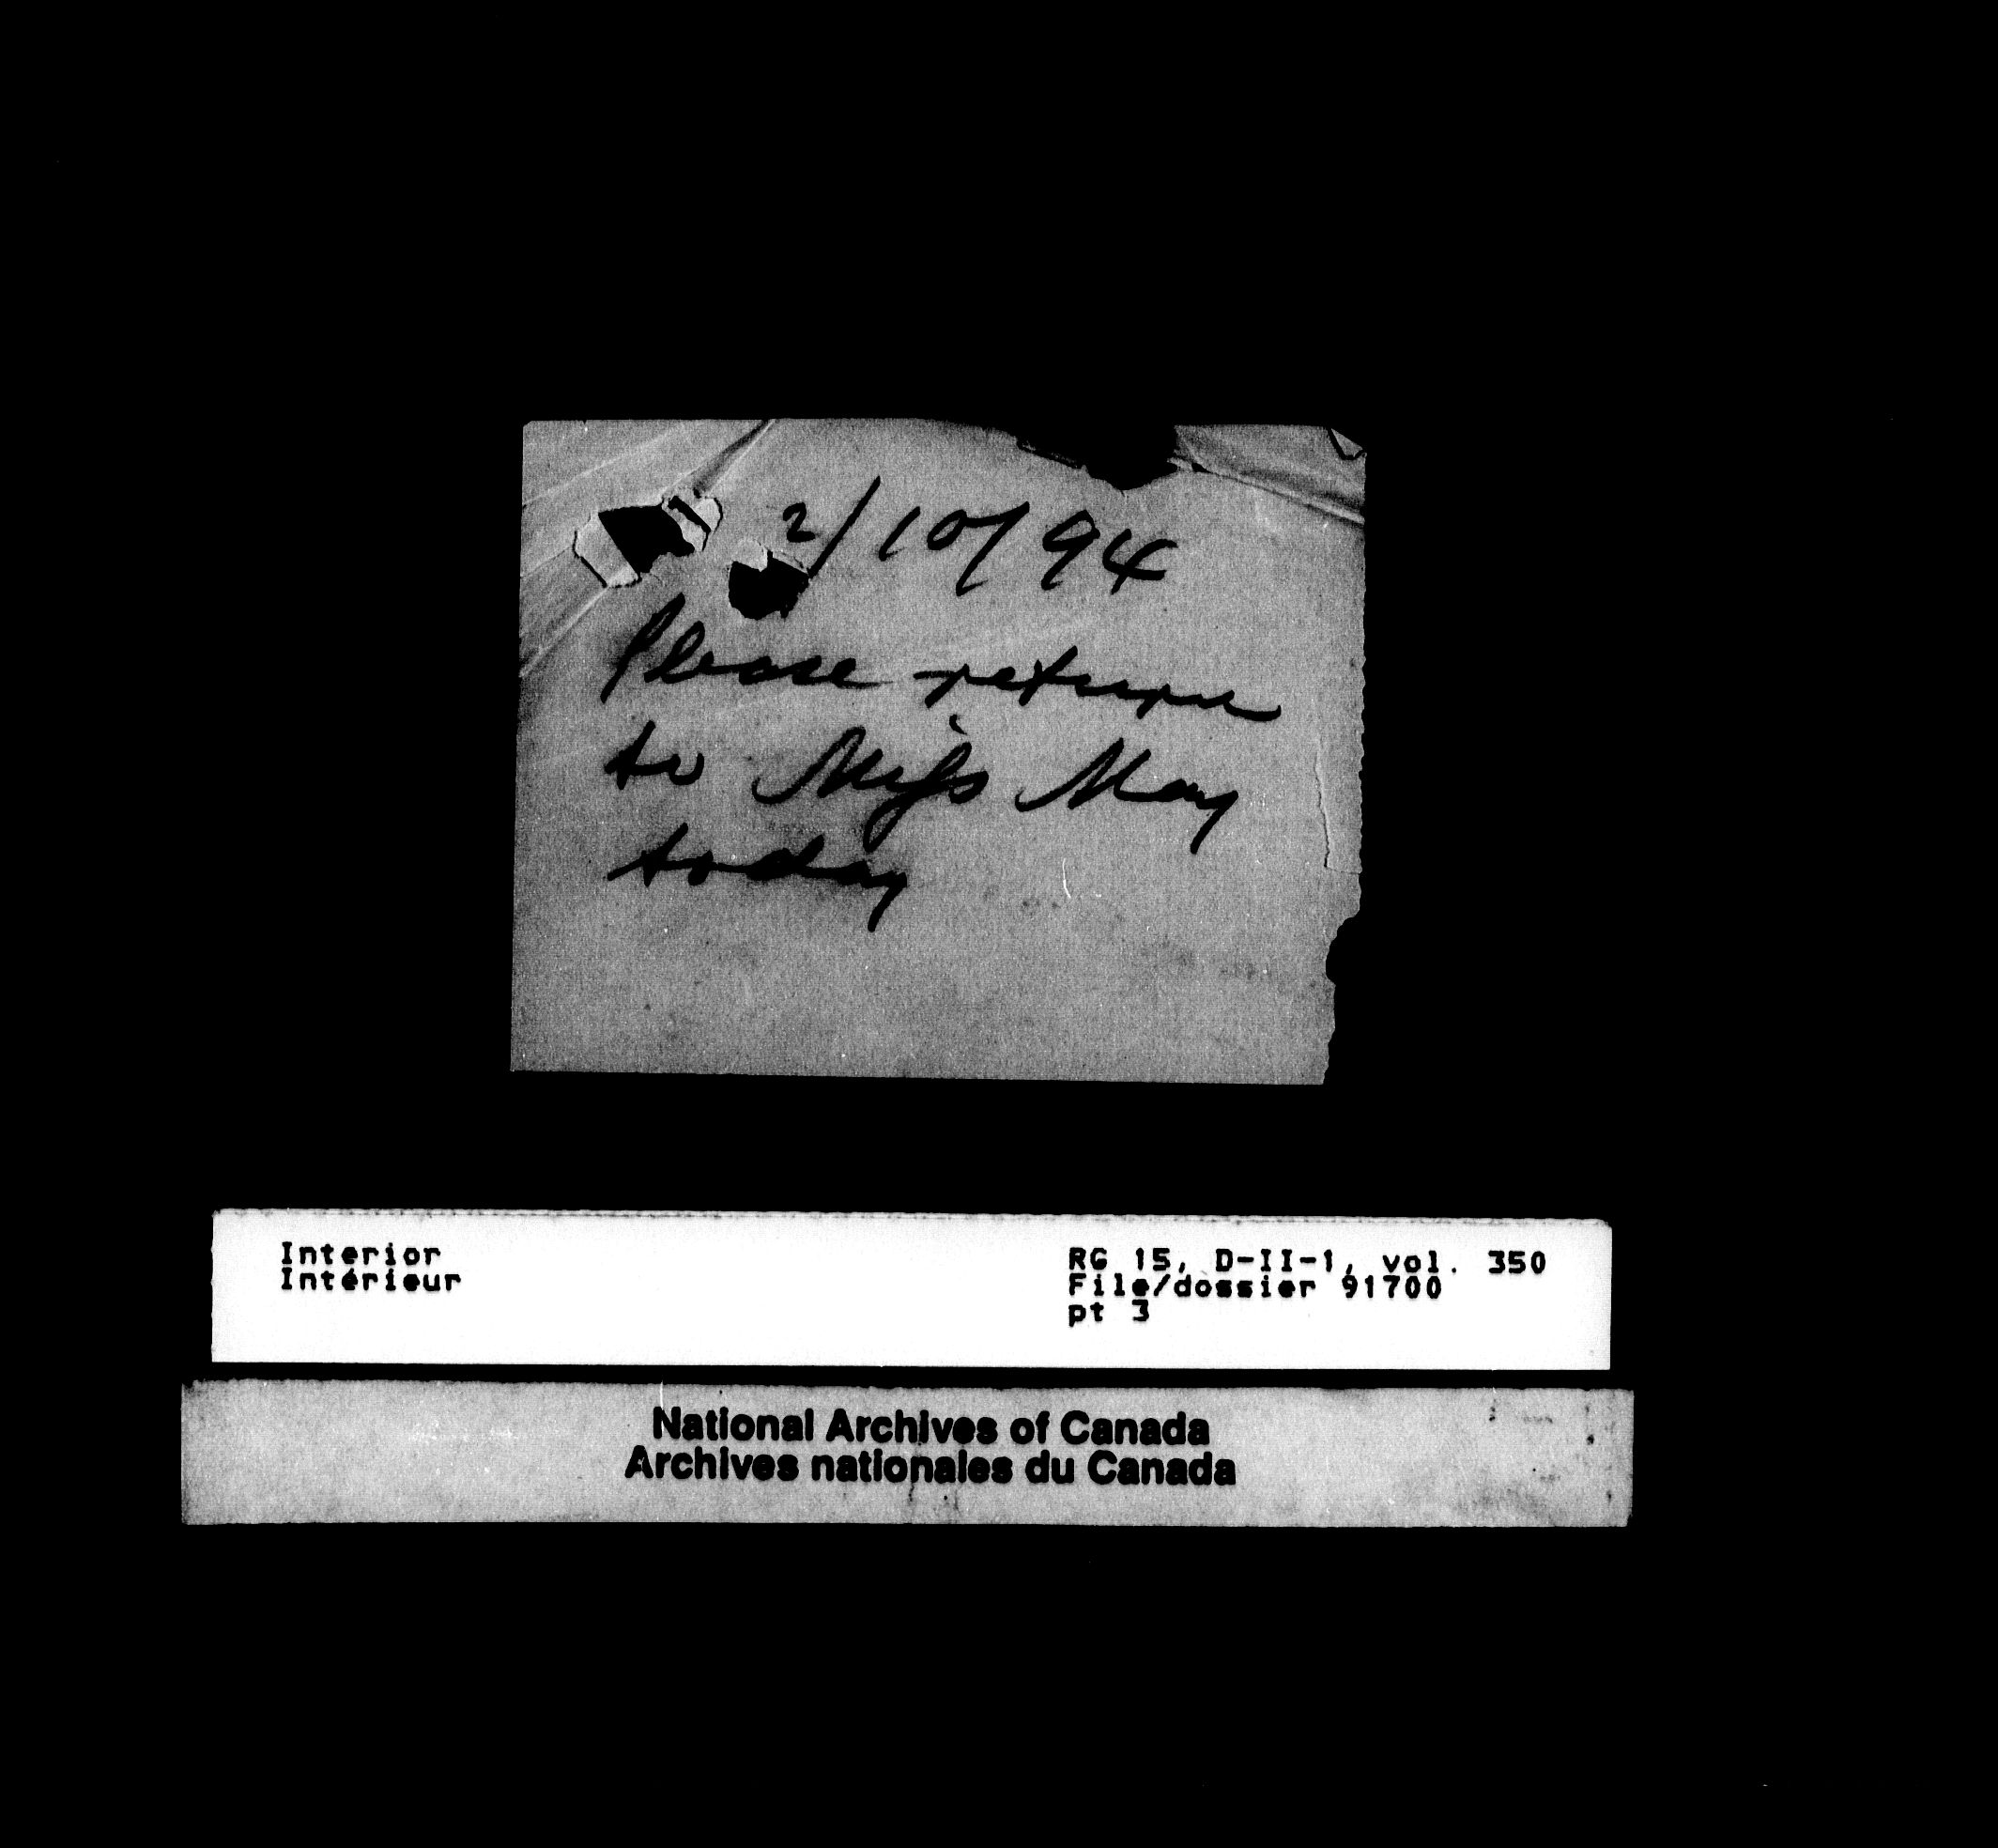 2/10/94
Please return
to Miſs May
today
Interior
Intérieur
RG 15, D-II-1, vol. 350
File/dossier 91700
pt 3
National Archives of Canada
Archives nationales du Canada